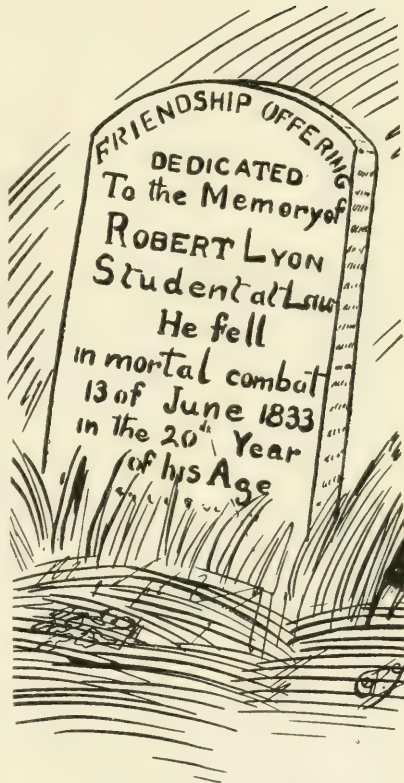 FRIENDSHIP OFFERING
DEDICATED
To the Memory of
ROBERT LYON
Student at Law
He fell
in mortal combat
13 of June 1833
in the 20th Year
of his Age